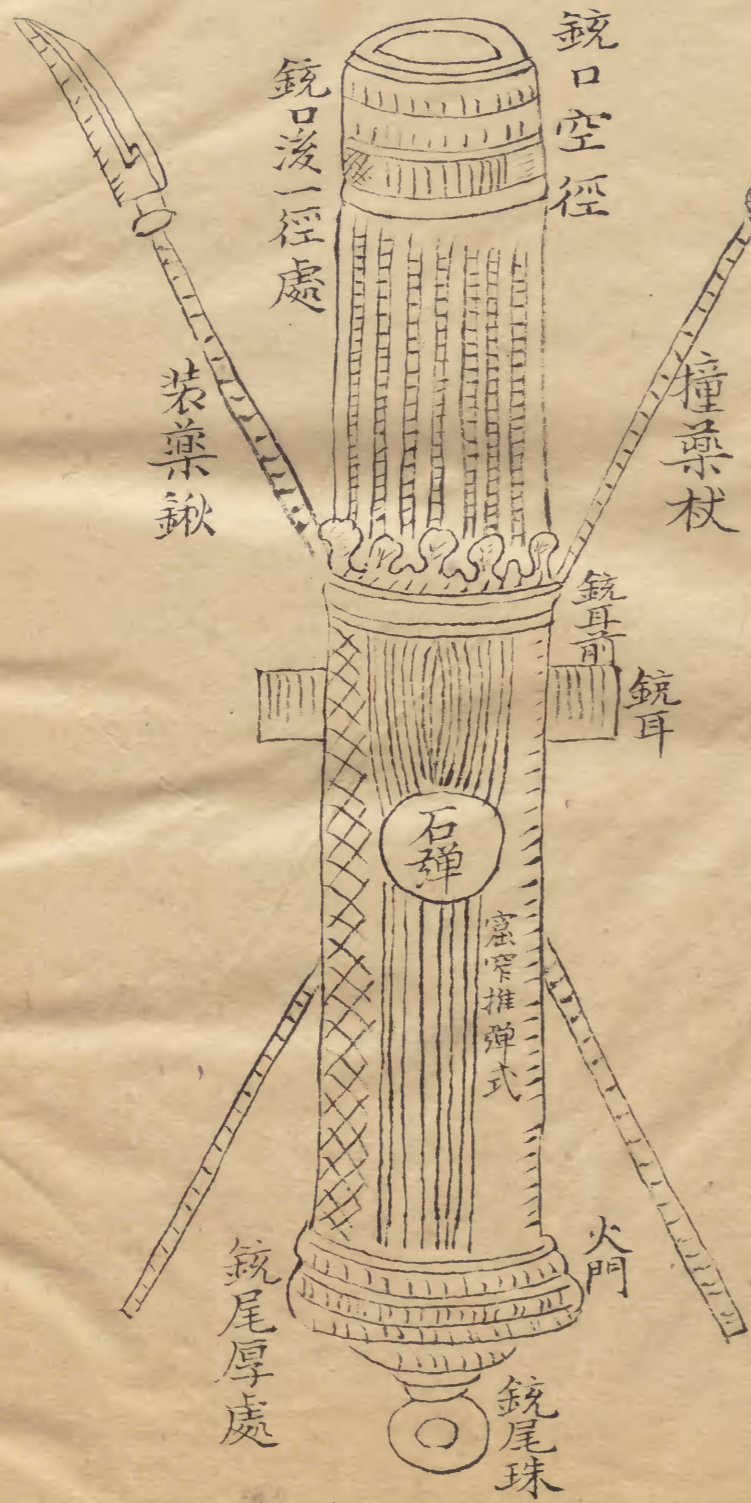 銃口空徑
銃口後一徑處
撞藥杖
裝藥鍬
銃耳前
銃耳
石彈
窟窄推彈式
火門
銃尾厚處
銃尾珠